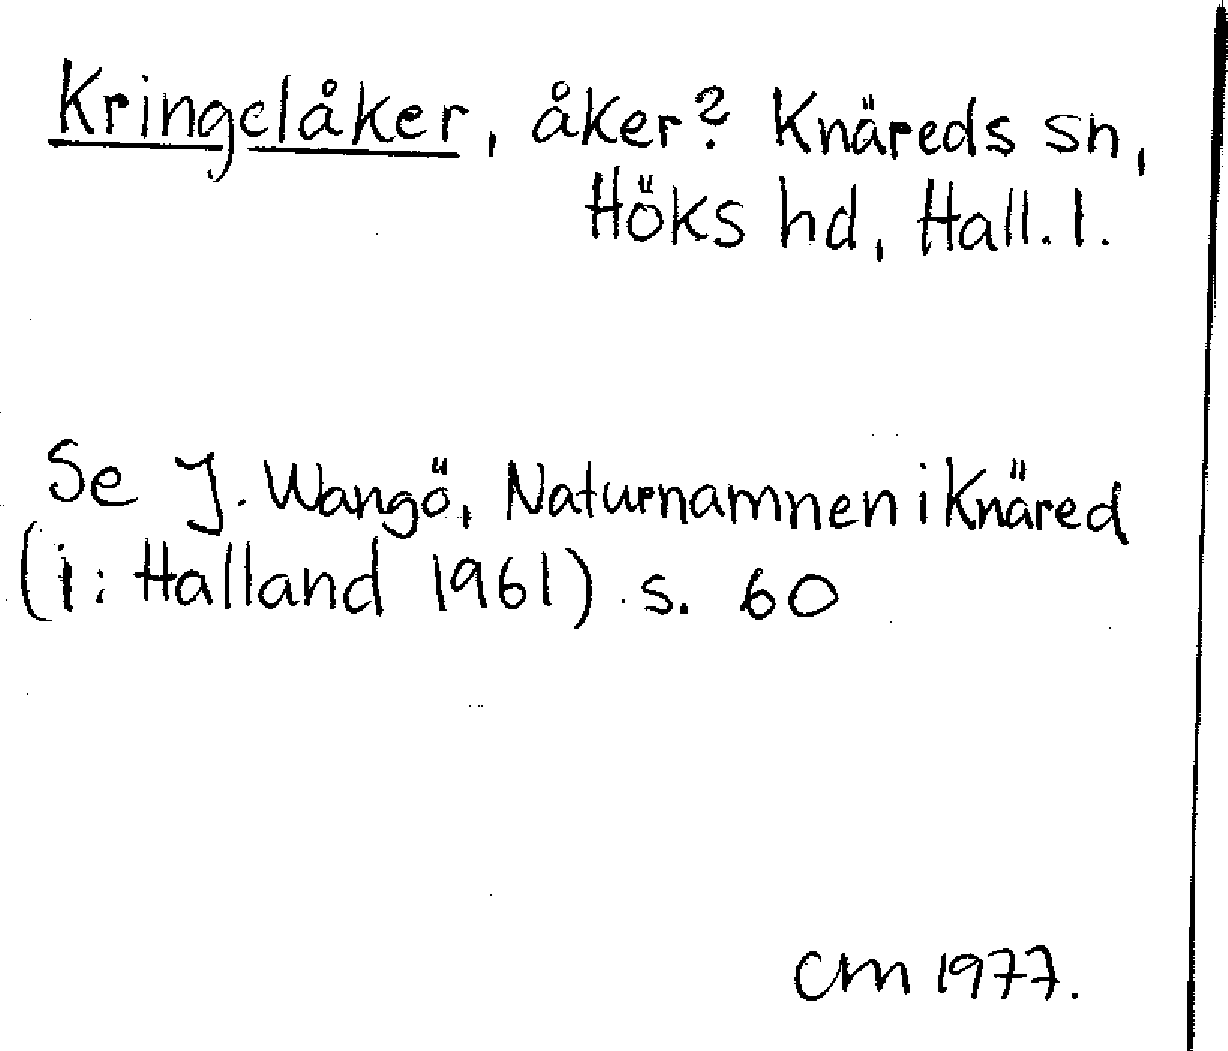 Kringelåker, åker? Knäreds sn,
Höks hd, Hall. l.
Se J. Wangö, Naturnamnen i Knäred
(i: Halland 1961) s. 60
CM 1977.